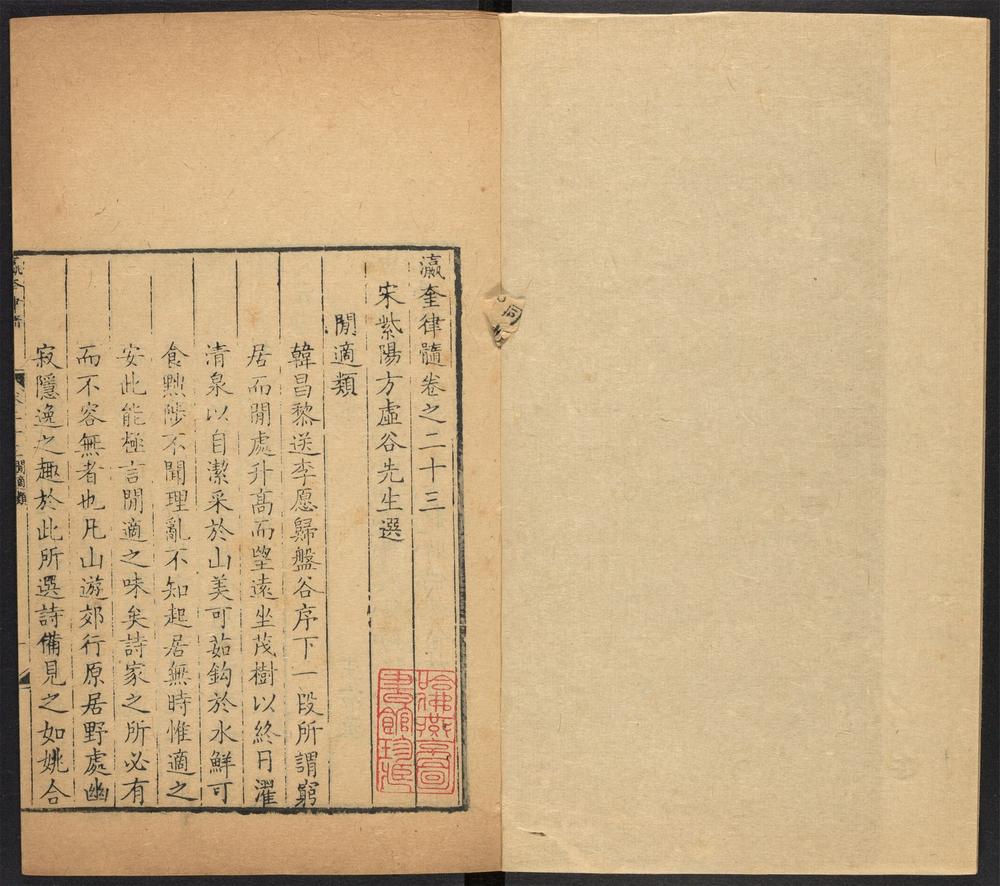 瀛奎律髓卷之二十三
宋紫陽方虛谷先生選
閒適類
韓昌黎送李愿歸盤谷序下一段所謂窮
居而閒處升髙而望逺坐茂樹以終日濯
清泉以自潔采於山美可茹鈎於水鮮可
食黜陟不聞理亂不知起居無時惟適之
安此能極言閒適之味矣詩家之所必有
而不容無者也凡山遊郊行原居野處幽
寂隱逸之趣於此所選詩備見之如姚合
閒適類
哈佛燕京圖
書館珍藏